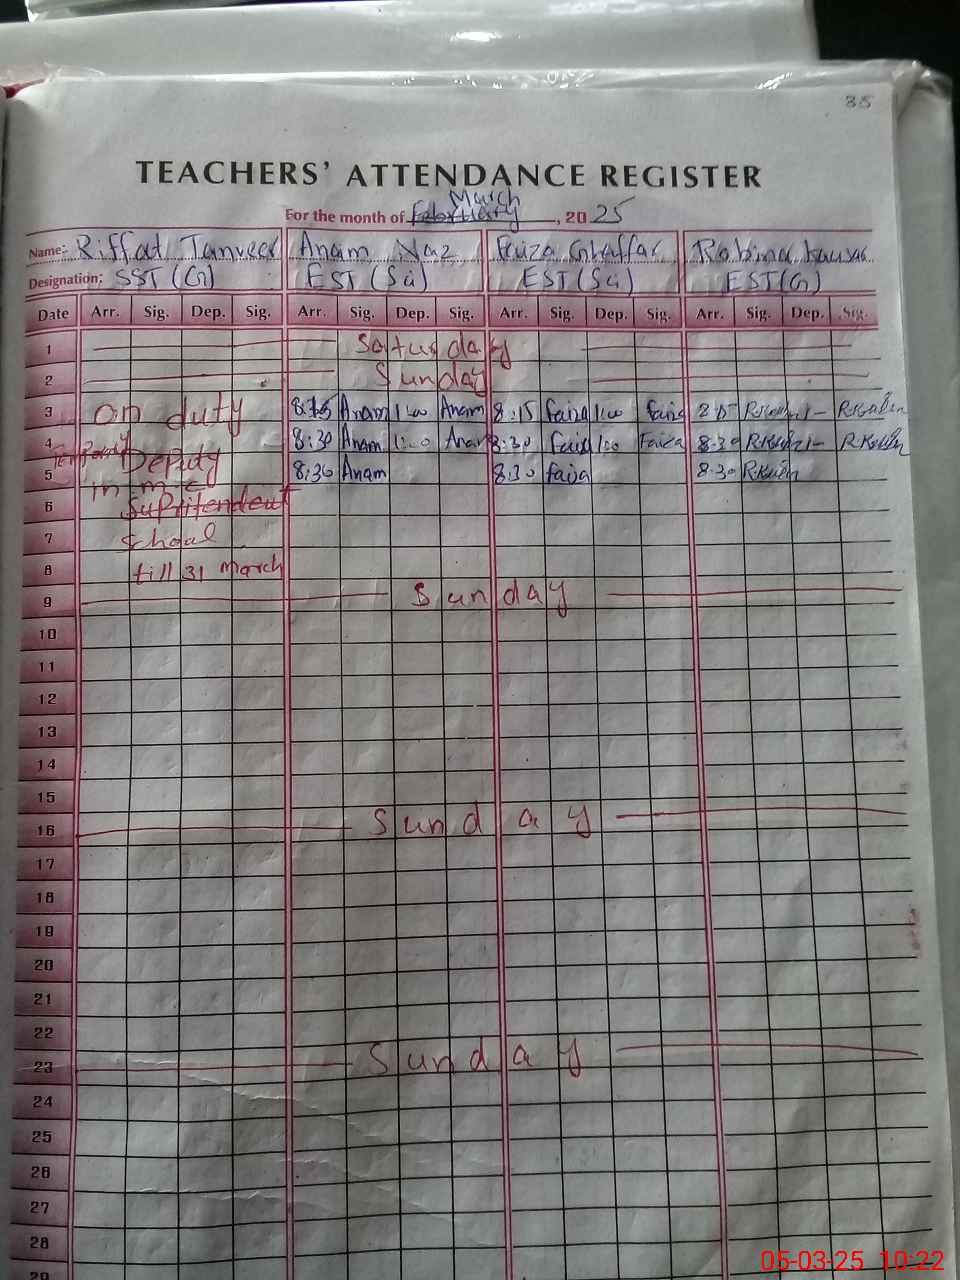 35
TEACHERS' ATTENDANCE REGISTER
March
For the month of February, 2025
Name:- Riffat Tanveer Anam Naz Faiza Ghaffar Robina Kausar
Designation: SST (G) EST (Sci) EST (Sci) EST (G)
Date Arr. Sig. Dep. Sig. Arr. Sig. Dep. Sig. Arr. Sig. Dep. Sig. Arr. Sig. Dep. Sig.
1 Saturday
2 Sunday
3 on duty 8:15 Anam 1:00 Anam 8:15 Faiza 1:00 Faiza
4 Deputy 8:30 Anam 1:00 Anam 8:30 Faiza 1:00 Faiza 8:30
5 in 8:30 Anam 8:30 faiza 8:30
6 Supritendent
7 School
8 till 31 march
9 Sunday
10
11
12
13
14
15
16 Sunday
17
18
19
20
21
22
23 Sunday
24
25
26
27
28
29
05-03-25 10:22